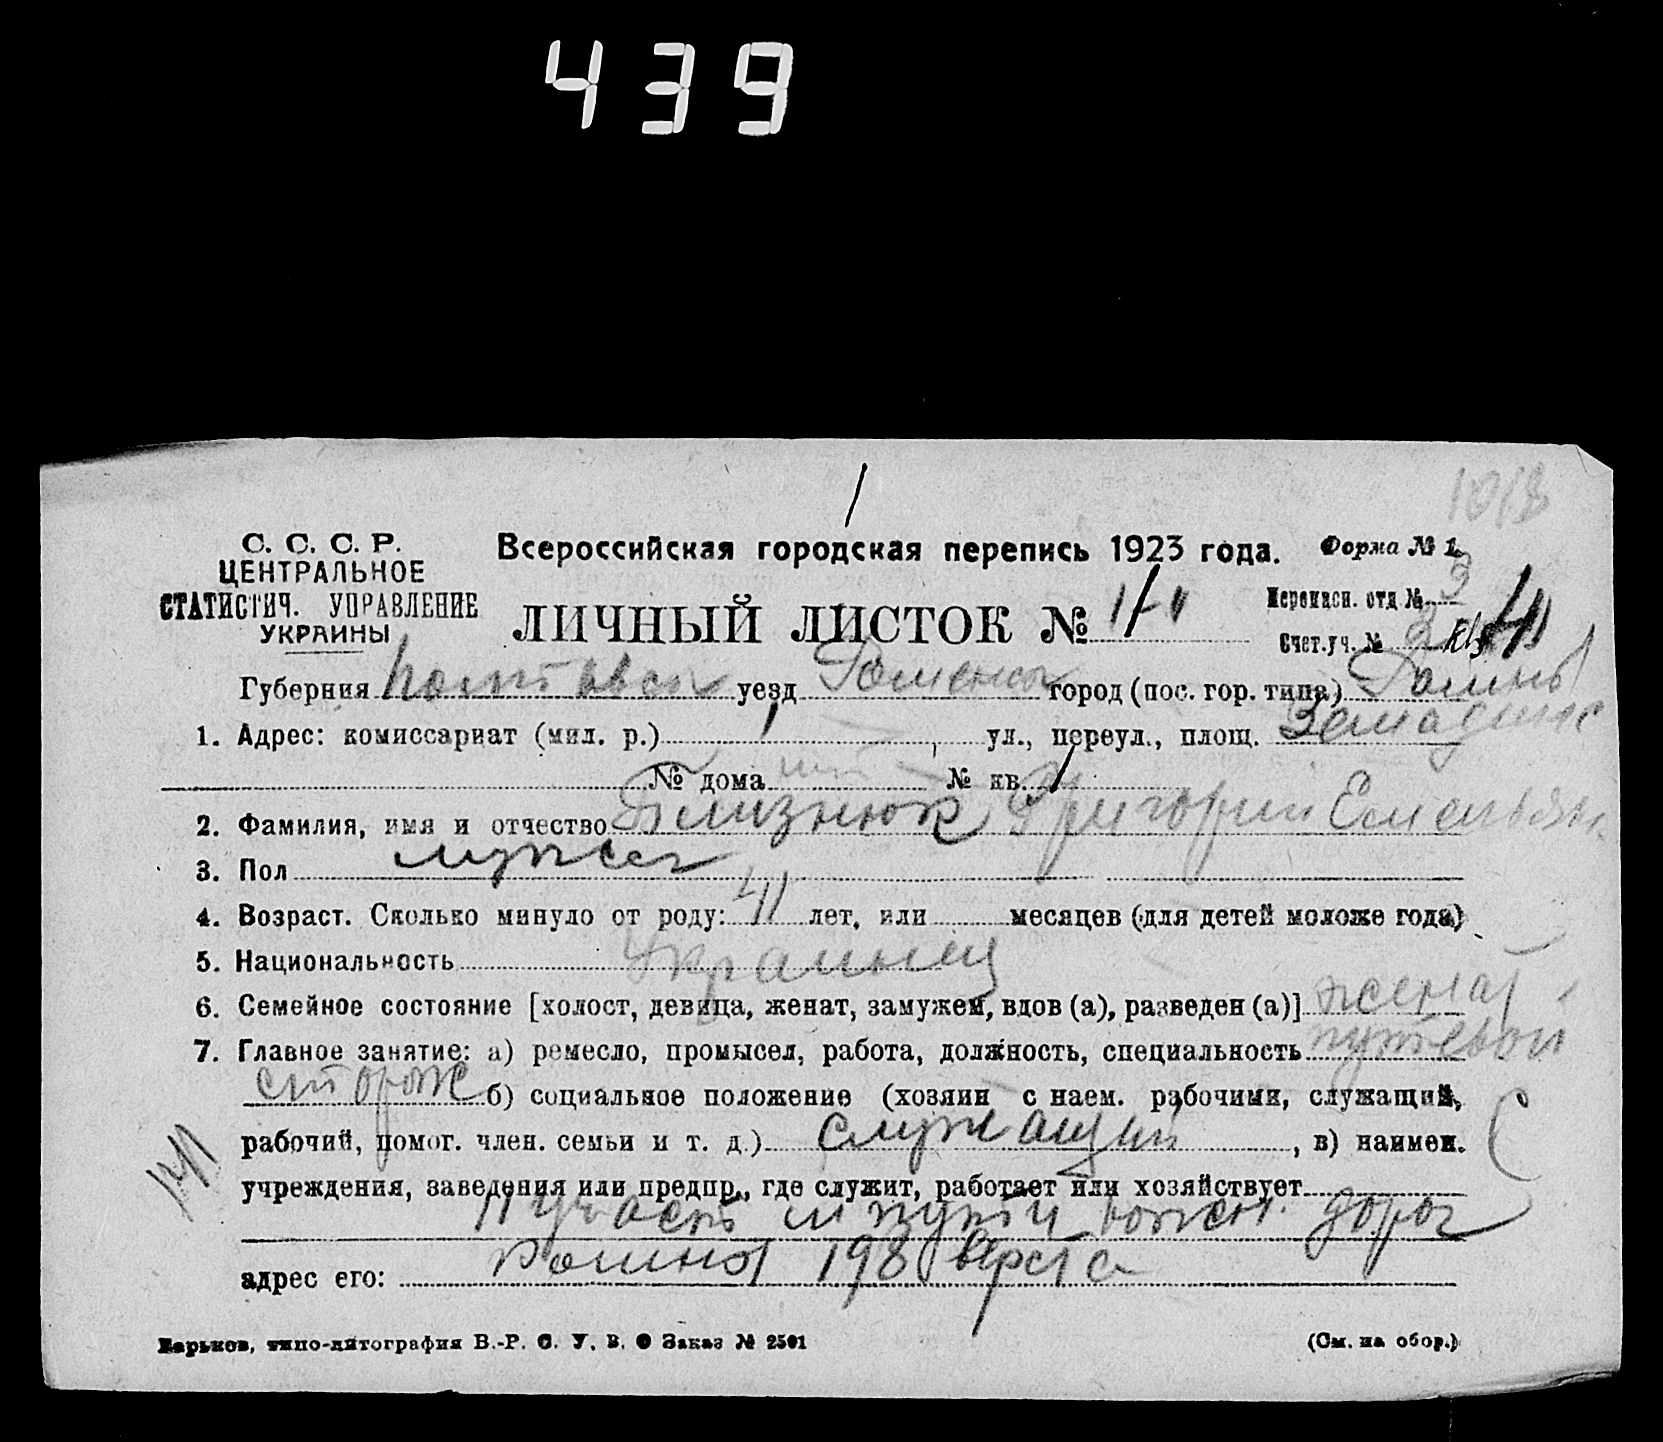 439
1
1013
С. С. С. Р.
ЦЕНТРАЛЬНОЕ
СТАТИСТИЧ. УПРАВЛЕНИЕ
УКРАИНЫ
Всероссийская городская перепись 1923 года.
Форма № 1.
ЛИЧНЫЙ ЛИСТОК №
Переписн. отд № 3
Счет.уч. № 3
Губерния Полтавск уезд Роменск город (пос. гор. типа) Ромны
1. Адрес: комиссариат (мил. р.) , ул., переул., площ.
№ дома № кв. 1
2. Фамилия, имя и отчество Близнюк Григорий Емельян.
3. Пол мужск
4. Возраст. Сколько минуло от роду: 41 лет, или месяцев (для детей моложе года)
5. Национальность Украинец
6. Семейное состояние [холост, девица, женат, замужем, вдов (а), разведен (а)] женат
7. Главное занятие: а) ремесло, промысел, работа, должность, специальность путевой
сторож б) социальное положение (хозяин с наем. рабочими, служащий,
рабочий, помог. член. семьи и т. д.) служащий , в) наимен.
учреждения, заведения или предпр., где служит, работает или хозяйствует
11 участ пути дорог
адрес его: Ромны 198 верста
Харьков, типо-литография В.-Р. С. У. В. О Заказ № 2501
(См. на обор.)